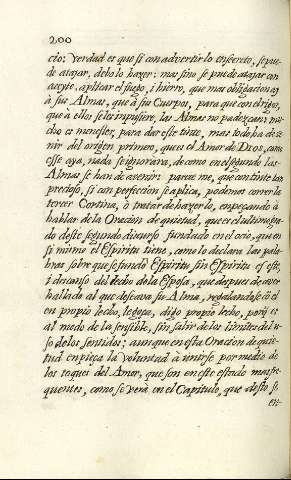 200
cio: verdad es que si con advertirlo en secreto, se pue-
de atajar, debo lo hazer: mas sino se puede atajar con
aceyte, aplicar el fuego, i hierro, que mas obligacion ay
à sus Almas, que à sus Cuerpos, para que con el rigor,
que à ellos se les impusiere, las Almas no padezcan: mu-
cho es menester, para dar este tinte, mas todo ha de ve-
nir del origen primero, que es el Amor de Dios, como
esse aya, nada se ignorarà, de como en el segundo las
Almas se han de avenir: parece me, que con tinte tan
precioso, si con perfeccion se aplica, podemos correr la
tercer Cortina, ò tratar de hazerlo, empeçando à
hablar de la Oracion de quietud, que es el ultimo gra-
do deste segundo discurso, fundado en el ocio, que en
si mismo el Espiritu tiene, como lo declara las pala-
bras sobre que se fundò Espiritu sin Espiritu es este,
i descanso del lecho de la Esposa, que despues de aver
hallado al que deseava su Alma, regalandose cõ el
en propio lecho, le goça, digo propio lecho, porq̃ es
al modo de la sensible, sin salir de los limites del u-
so de los sentidos; aunque en esta Oracion de quie-
tud empieça la voluntad à unirse por medio de
los toques del Amor, que son en este estado mas fre-
quentes, como se verà en el Capitulo, que desto se
en-